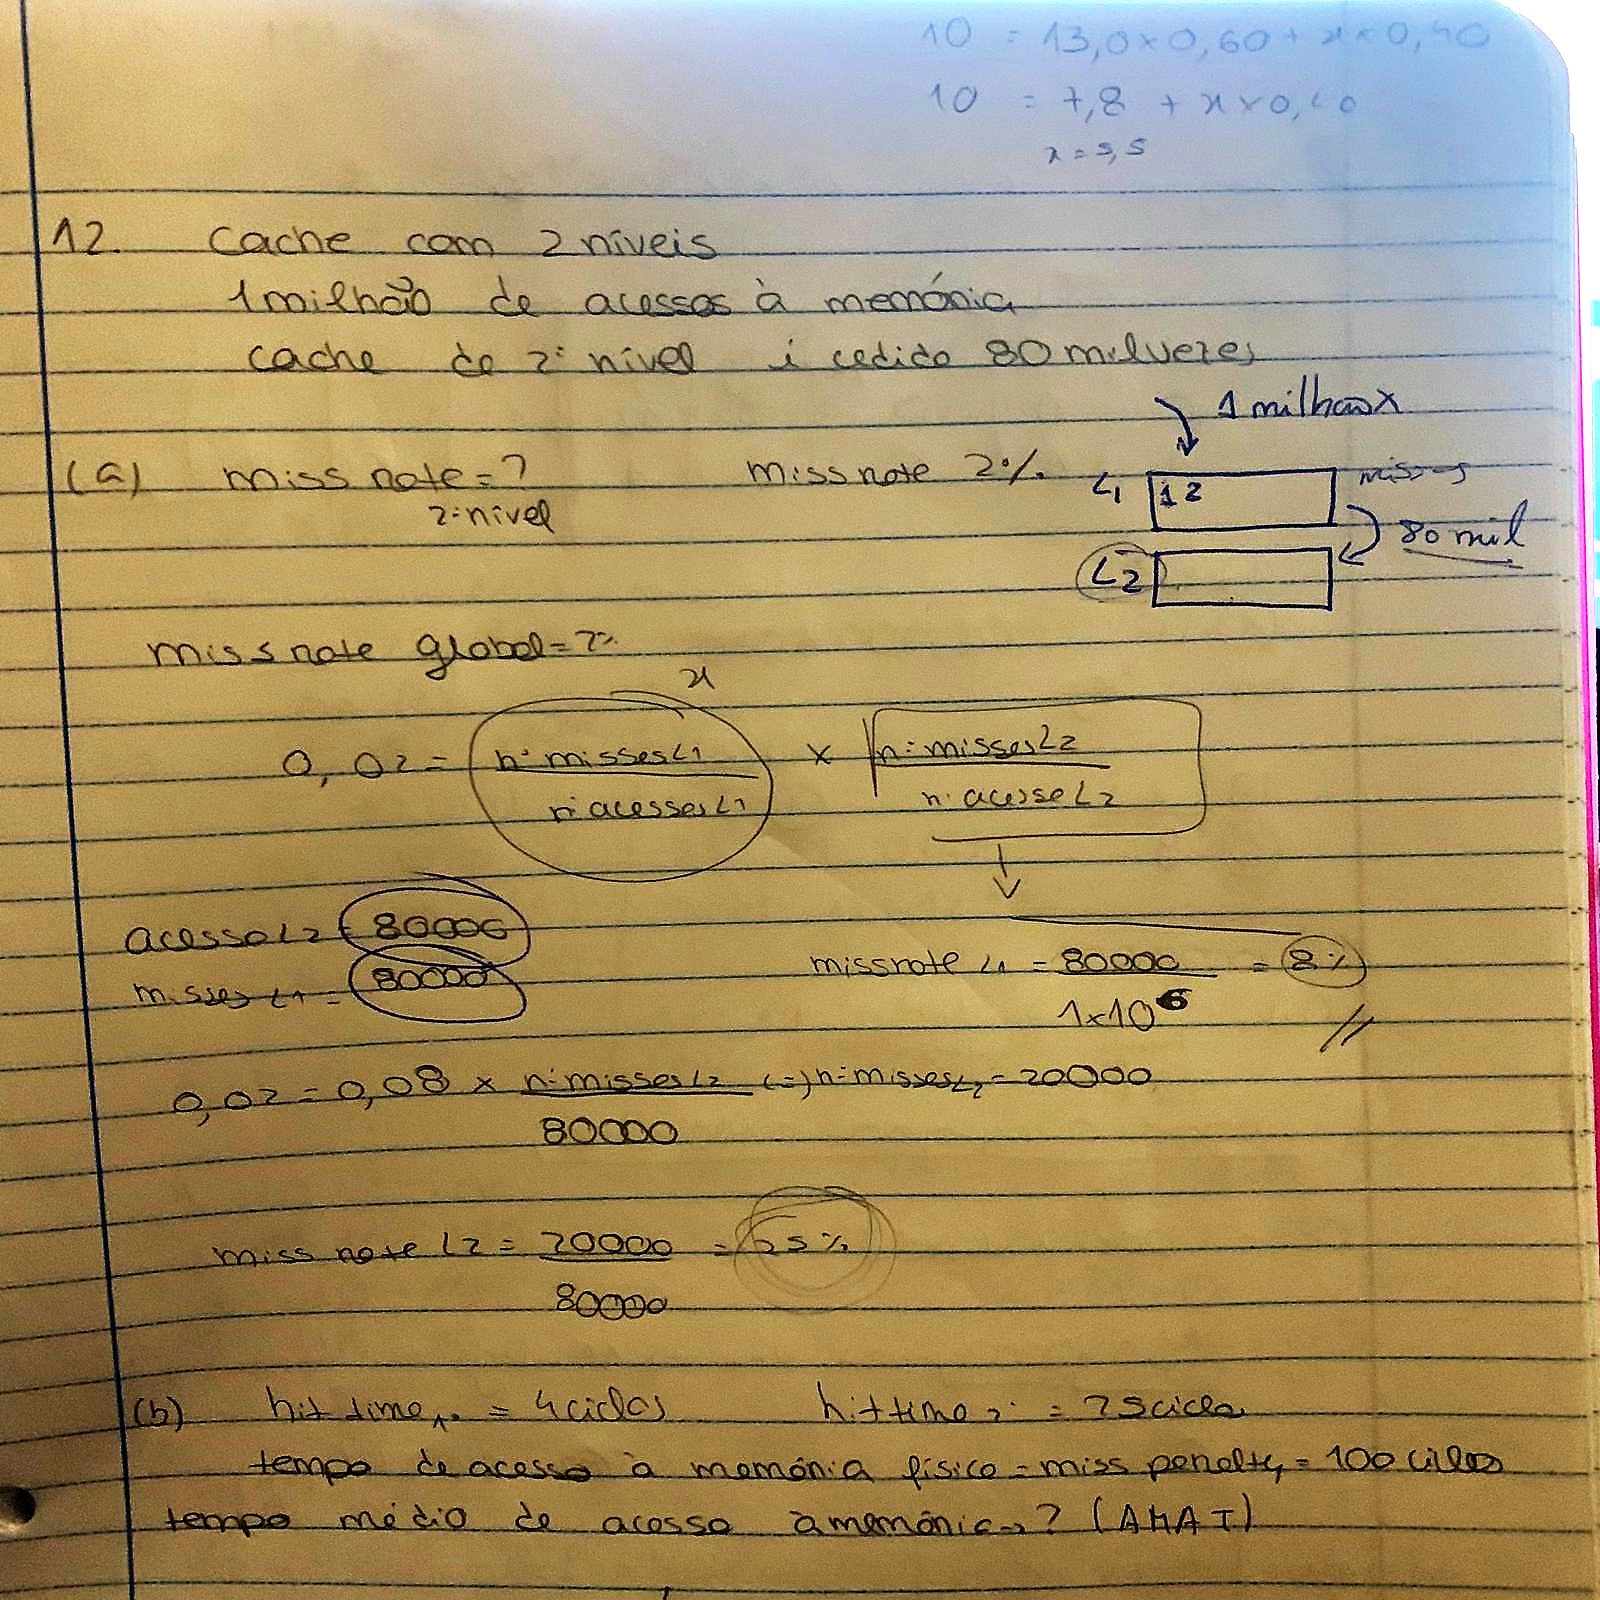 10 = 13,0 x 0,60 + x x 0,40
10 = 7,8 + x x 0,40
x = 5,5
12. Cache com 2 níveis
1 milhão de acessos à memória
cache de 2º nível é cedido 80 mil vezes
1 milhão x
(a) miss rate = ? miss rate 2% L1 12 misses
2º nível
80 mil
L2
miss rate global = 2%
x
0,02 = nº misses L1 x nº misses L2
nº acesses L1 nº acesso L2
acesso L2 = 80000
misses L1 = 80000
miss rate L1 = 80000 = 8%
1x10^6
0,02 = 0,08 x nº misses L2 (=) nº misses L2 = 20000
80000
miss rate L2 = 20000 = 25%
80000
(b) hit time 1º = 4 ciclos hit time 2º = 25 ciclos
tempo de acesso à memória físico = miss penalty = 100 ciclos
tempo médio de acesso à memória ? (AMAT)